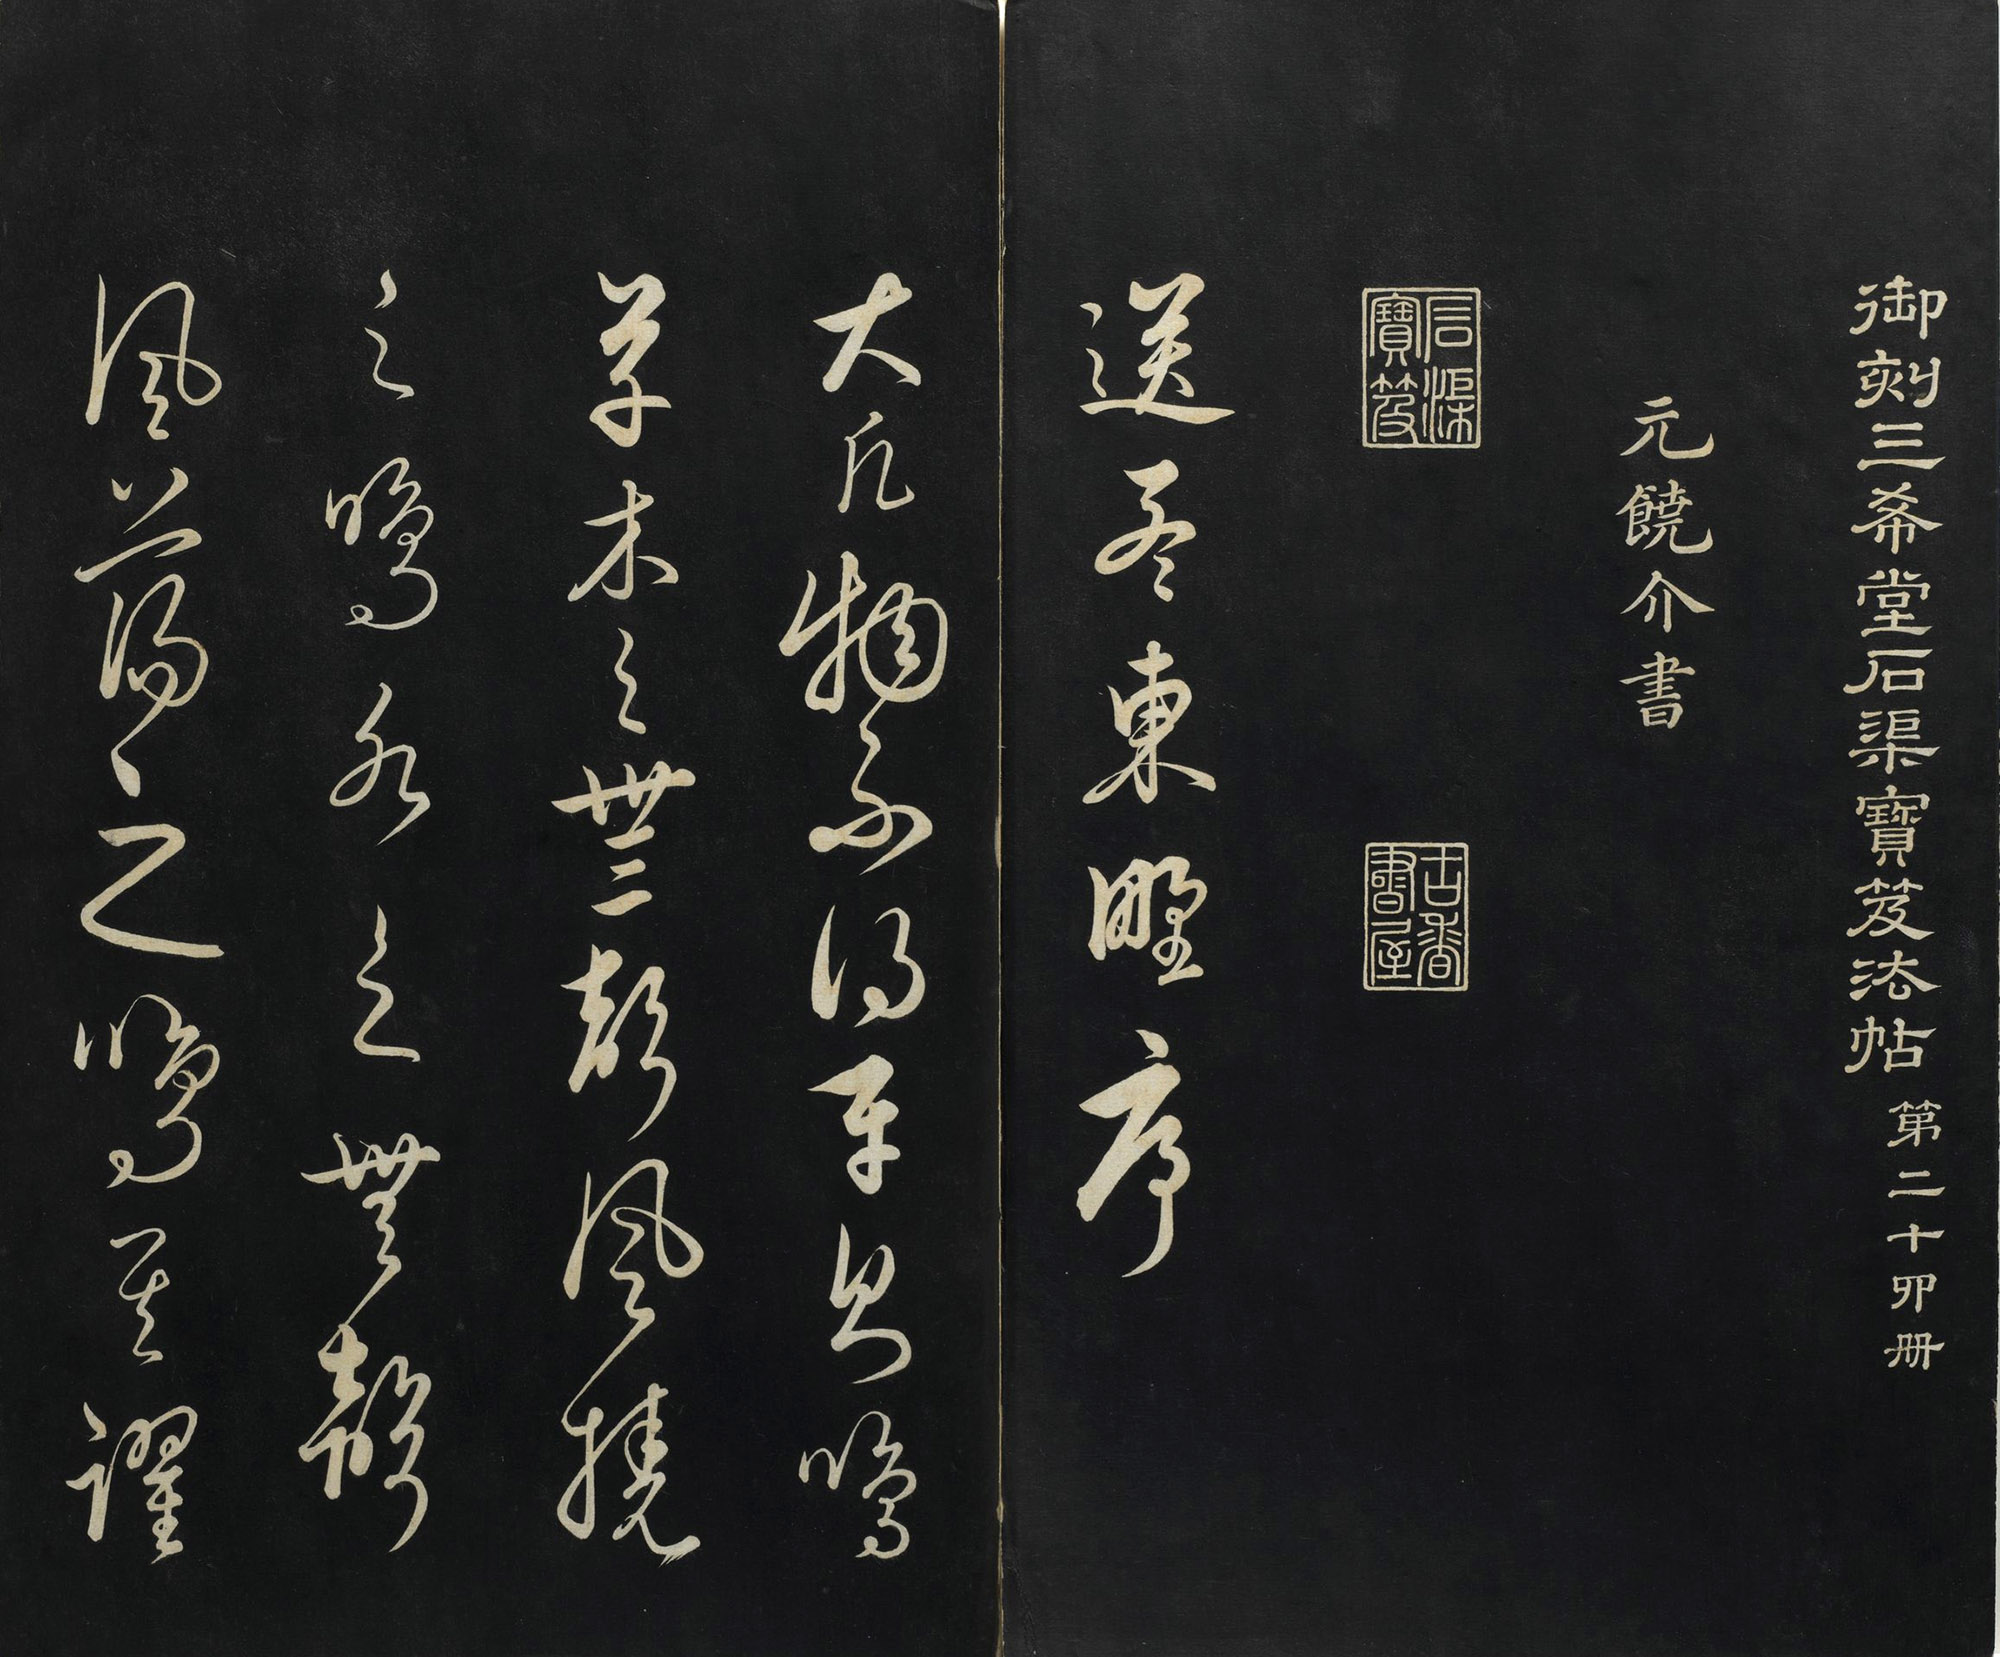 御刻三希堂石渠寶笈法帖 第二十卯册
元饒介書
石渠寶笈
古香書屋
送孟東野序
大凡物不得平則鳴
草木之無聲風撓
之鳴水之無聲
風蕩之鳴其躍